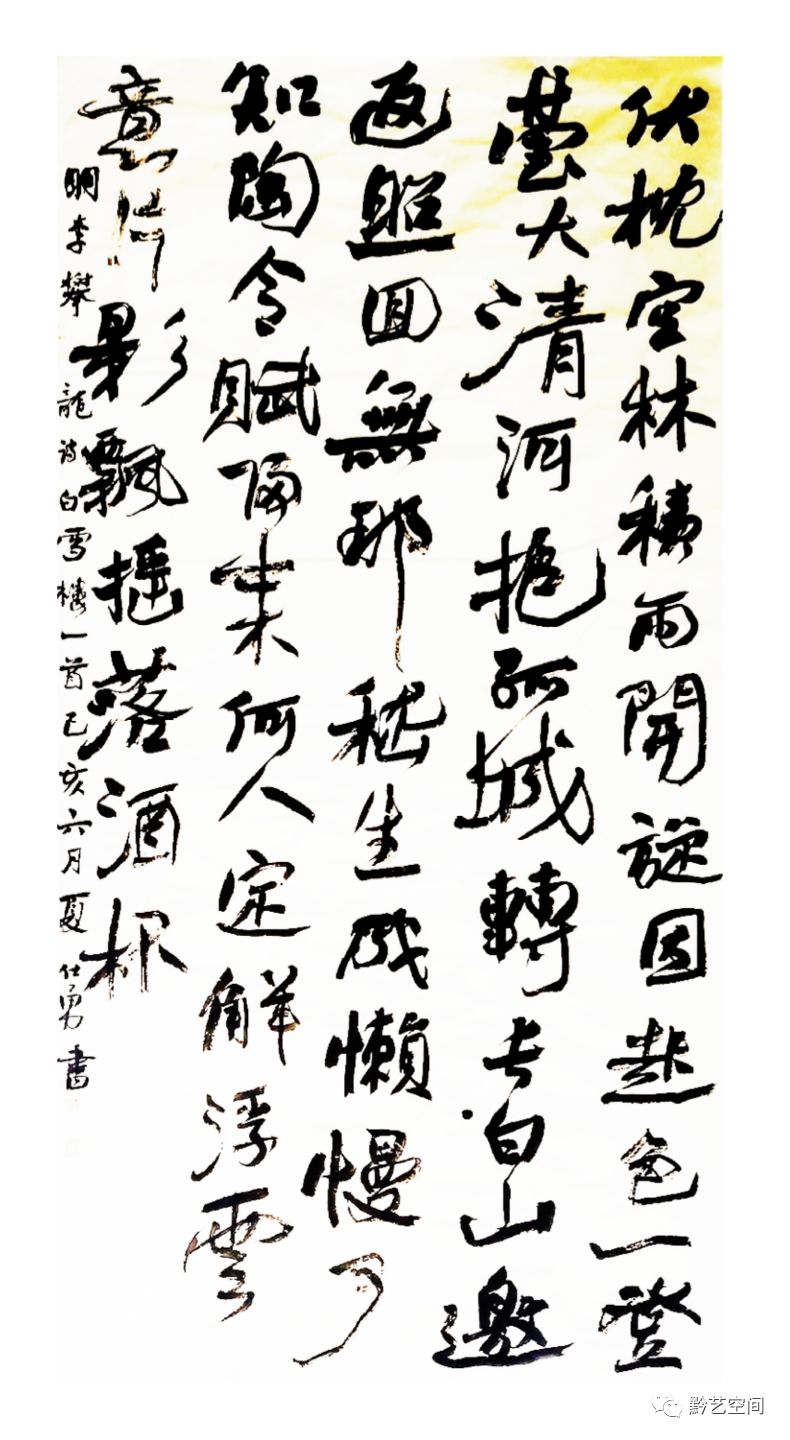 伏枕空林積雨開旋因起色一登
臺大清河抱孤城轉長白山邀
返照回無那嵇生成懶慢可
知陶令賦歸來何人定解浮雲
意片影飄摇落酒杯
明李攀龍詩白雪樓一首己亥六月夏仕勇書
黔艺空间